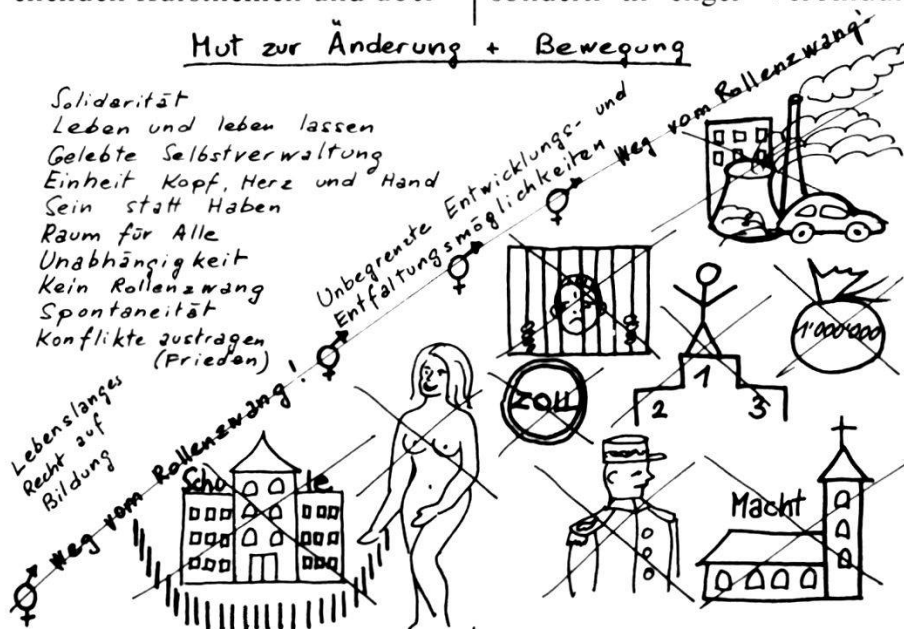 sondern in enger
Mut zur Änderung + Bewegung
Solidarität
Leben und leben lassen
Gelebte Selbstverwaltung
Einheit Kopf, Herz und Hand
Sein statt Haben
Raum für Alle
Unabhängigkeit
Kein Rollenzwang
Spontaneität
Konflikte austragen
(Frieden)
Lebenslanges
Recht auf
Bildung
Weg vom Rollenzwang!
Unbegrenzte Entwicklungs- und
Entfaltungsmöglichkeiten
Weg vom Rollenzwang!
1'000'000
ZOLL
1
2
3
Schule
Macht